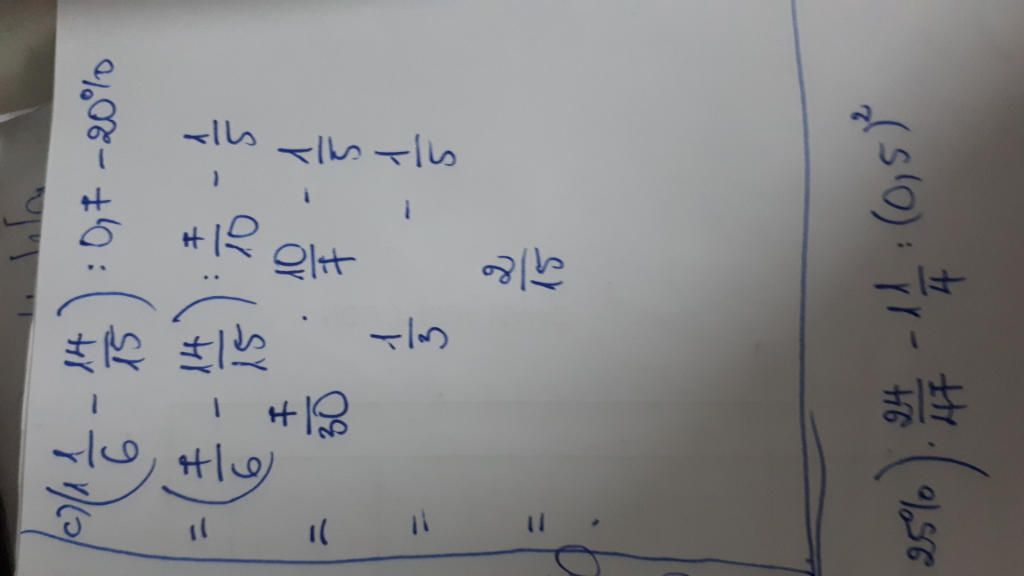 c) (1 1/6 - 14/15) : 0,7 - 20%
= (7/6 - 14/15) : 7/10 - 1/5
= 7/30 . 10/7 - 1/5
= 1/3 - 1/5
= 2/15
25%) . 24/47 - 1 1/4 : (0,5)²